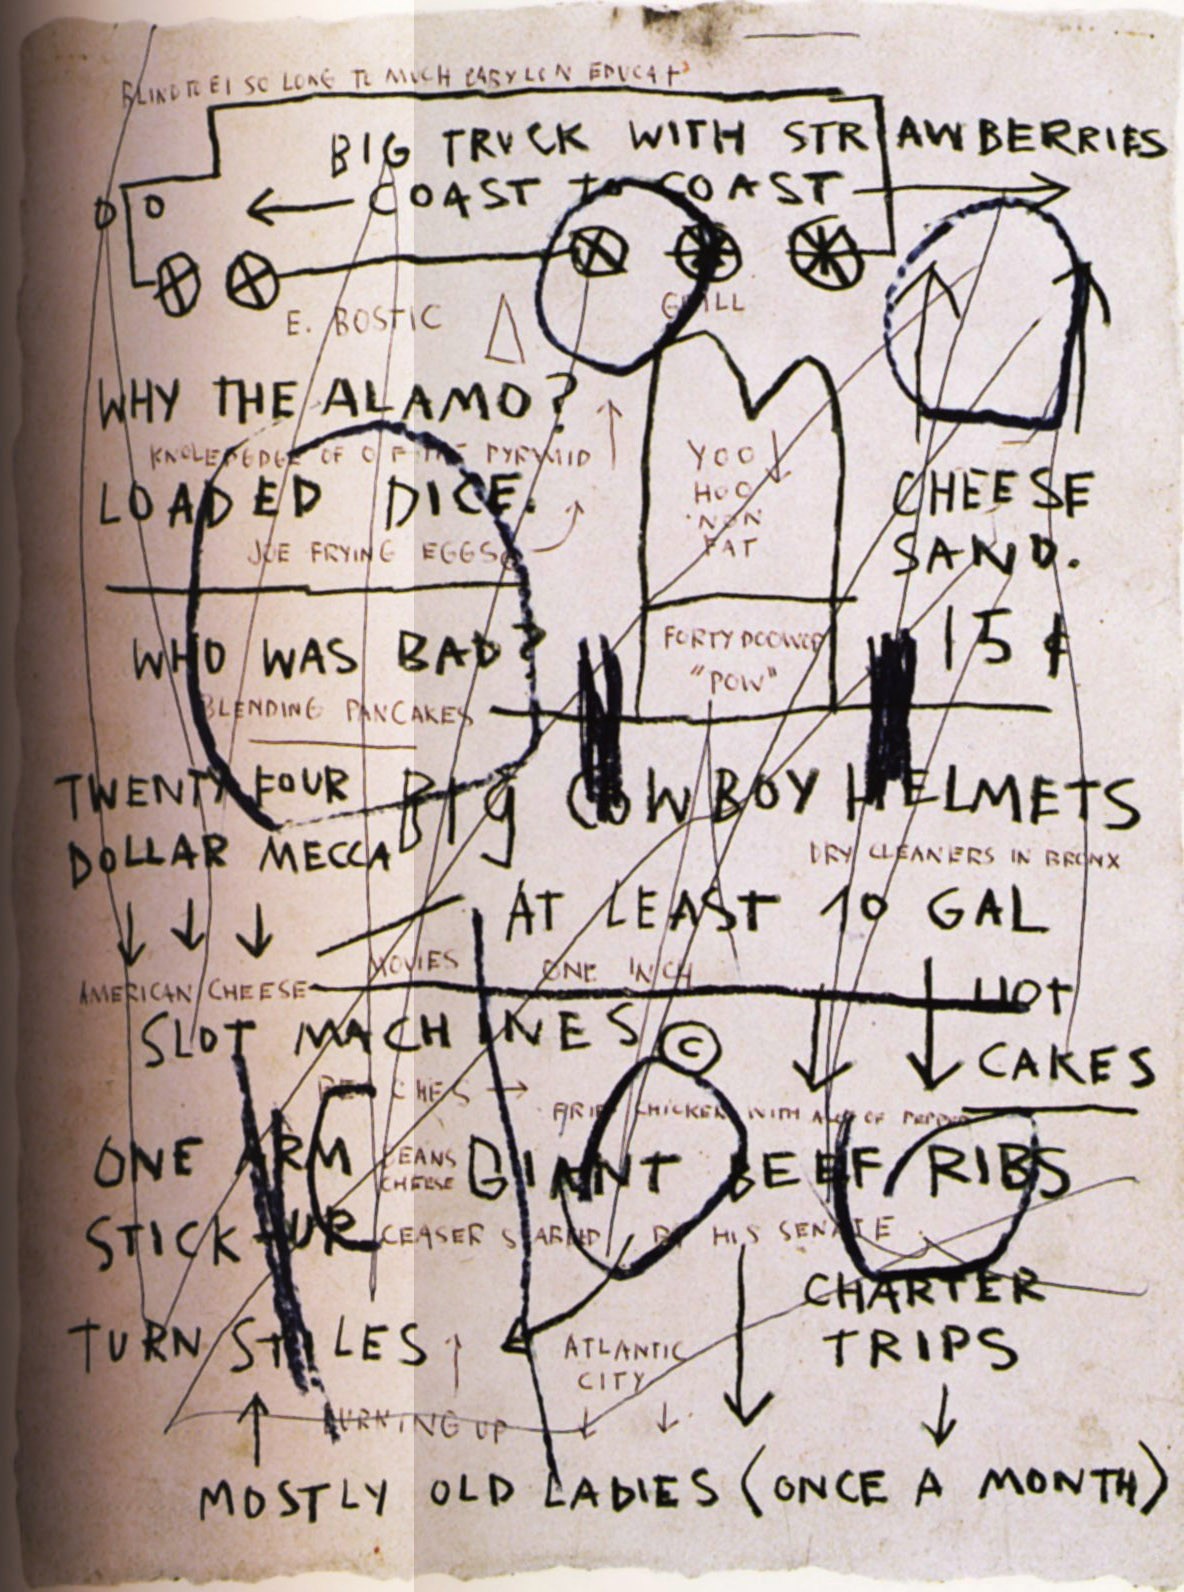 SO LONG TO MUCH BABYLON EDUCAT
BIG TRUCK WITH STRAWBERRIES
COAST to COAST
E. BOSTIC
GRILL
WHY THE ALAMO?
KNOLEDGE OF OF THE PYRYMID
LOADED DICE.
JOE FRYING EGGS
YOO
HOO
NON
FAT
CHEESE
SAND.
15 ¢
WHO WAS BAD?
"POW"
BLENDING PANCAKES
TWENTY FOUR
DOLLAR MECCA
BIG COWBOY HELMETS
DRY CLEANERS IN BRONX
AT LEAST 10 GAL
MOVIES
ONE INCH
AMERICAN CHEESE
HOT
CAKES
SLOT MACHINES ©
CHICKEN WITH A LOT OF PEPPER
ONE ARM
STICK-UP
BEANS
CHEESE
GIANT BEEF RIBS
CEASER STABBED BY HIS SENATE
CHARTER
TRIPS
TURN STILES
ATLANTIC
CITY
BURNING UP
MOSTLY OLD LADIES (ONCE A MONTH)